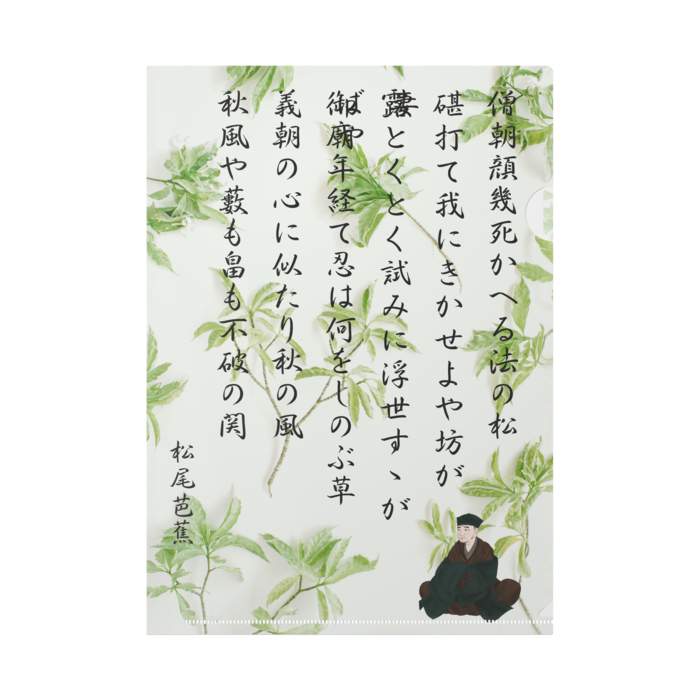 僧朝顔幾死かへる法の松
碪打て我にきかせよや坊が
妻
露とくとく試みに浮世すゝが
ばや
御廟年経て忍は何をしのぶ草
義朝の心に似たり秋の風
秋風や藪も畠も不破の関
松尾芭蕉